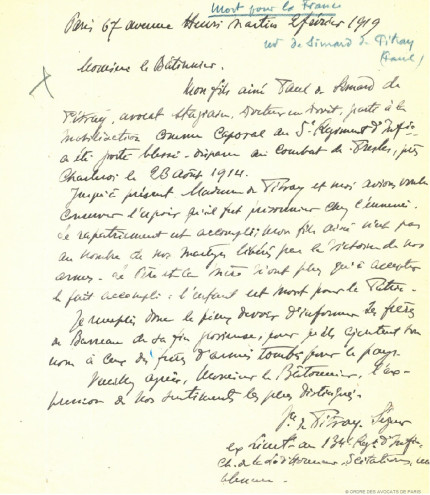 Mort pour la France
Paris 67 avenue Henri Martin 2 février 1919
de Simard de Pitray
(Paul)
Monsieur le Bâtonnier.
Mon fils aimé Paul de Simard de
Pitray, avocat stagiaire, Docteur en Droit, parti à la
mobilisation comme Caporal au 5e Régiment d'Infie
a été porté blessé-disparu au Combat de près
Charleroi le 23 Août 1914.
Jusqu'à présent Madame de Pitray et moi avions voulu
conserver l'espoir qu'il fut prisonnier chez l'ennemi.
Le rapatriement est accompli; mon fils aimé n'est pas
au nombre de nos martyrs libérés par la victoire de nos
armes. Le Père et la Mère n'ont plus qu'à accepter
le fait accompli: l'enfant est mort pour la Patrie.
Je remplis donc le pieux devoir d'informer ses frères
du Barreau de sa fin glorieuse, pour qu'ils ajoutent son
nom à ceux des frères d'armes tombés pour le pays.
Veuillez agréer, Monsieur le Bâtonnier, l'ex-
pression de nos sentiments les plus distingués.
de Pitray
ex au 134e Régt d'Infie
Ch. de la Lé d'Honneur, 5 citations, un
blessure.
© ORDRE DES AVOCATS DE PARIS